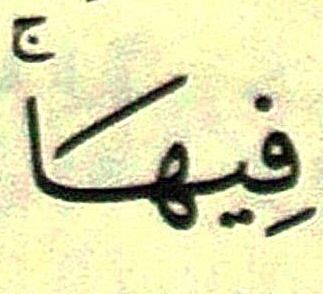 فِيهَاۚ